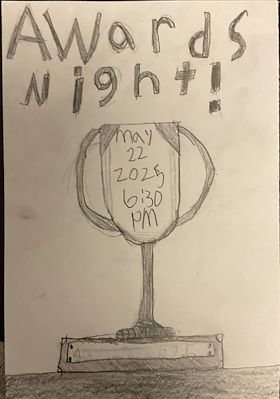 AWards
Night!
May
22
2025
6:30
PM